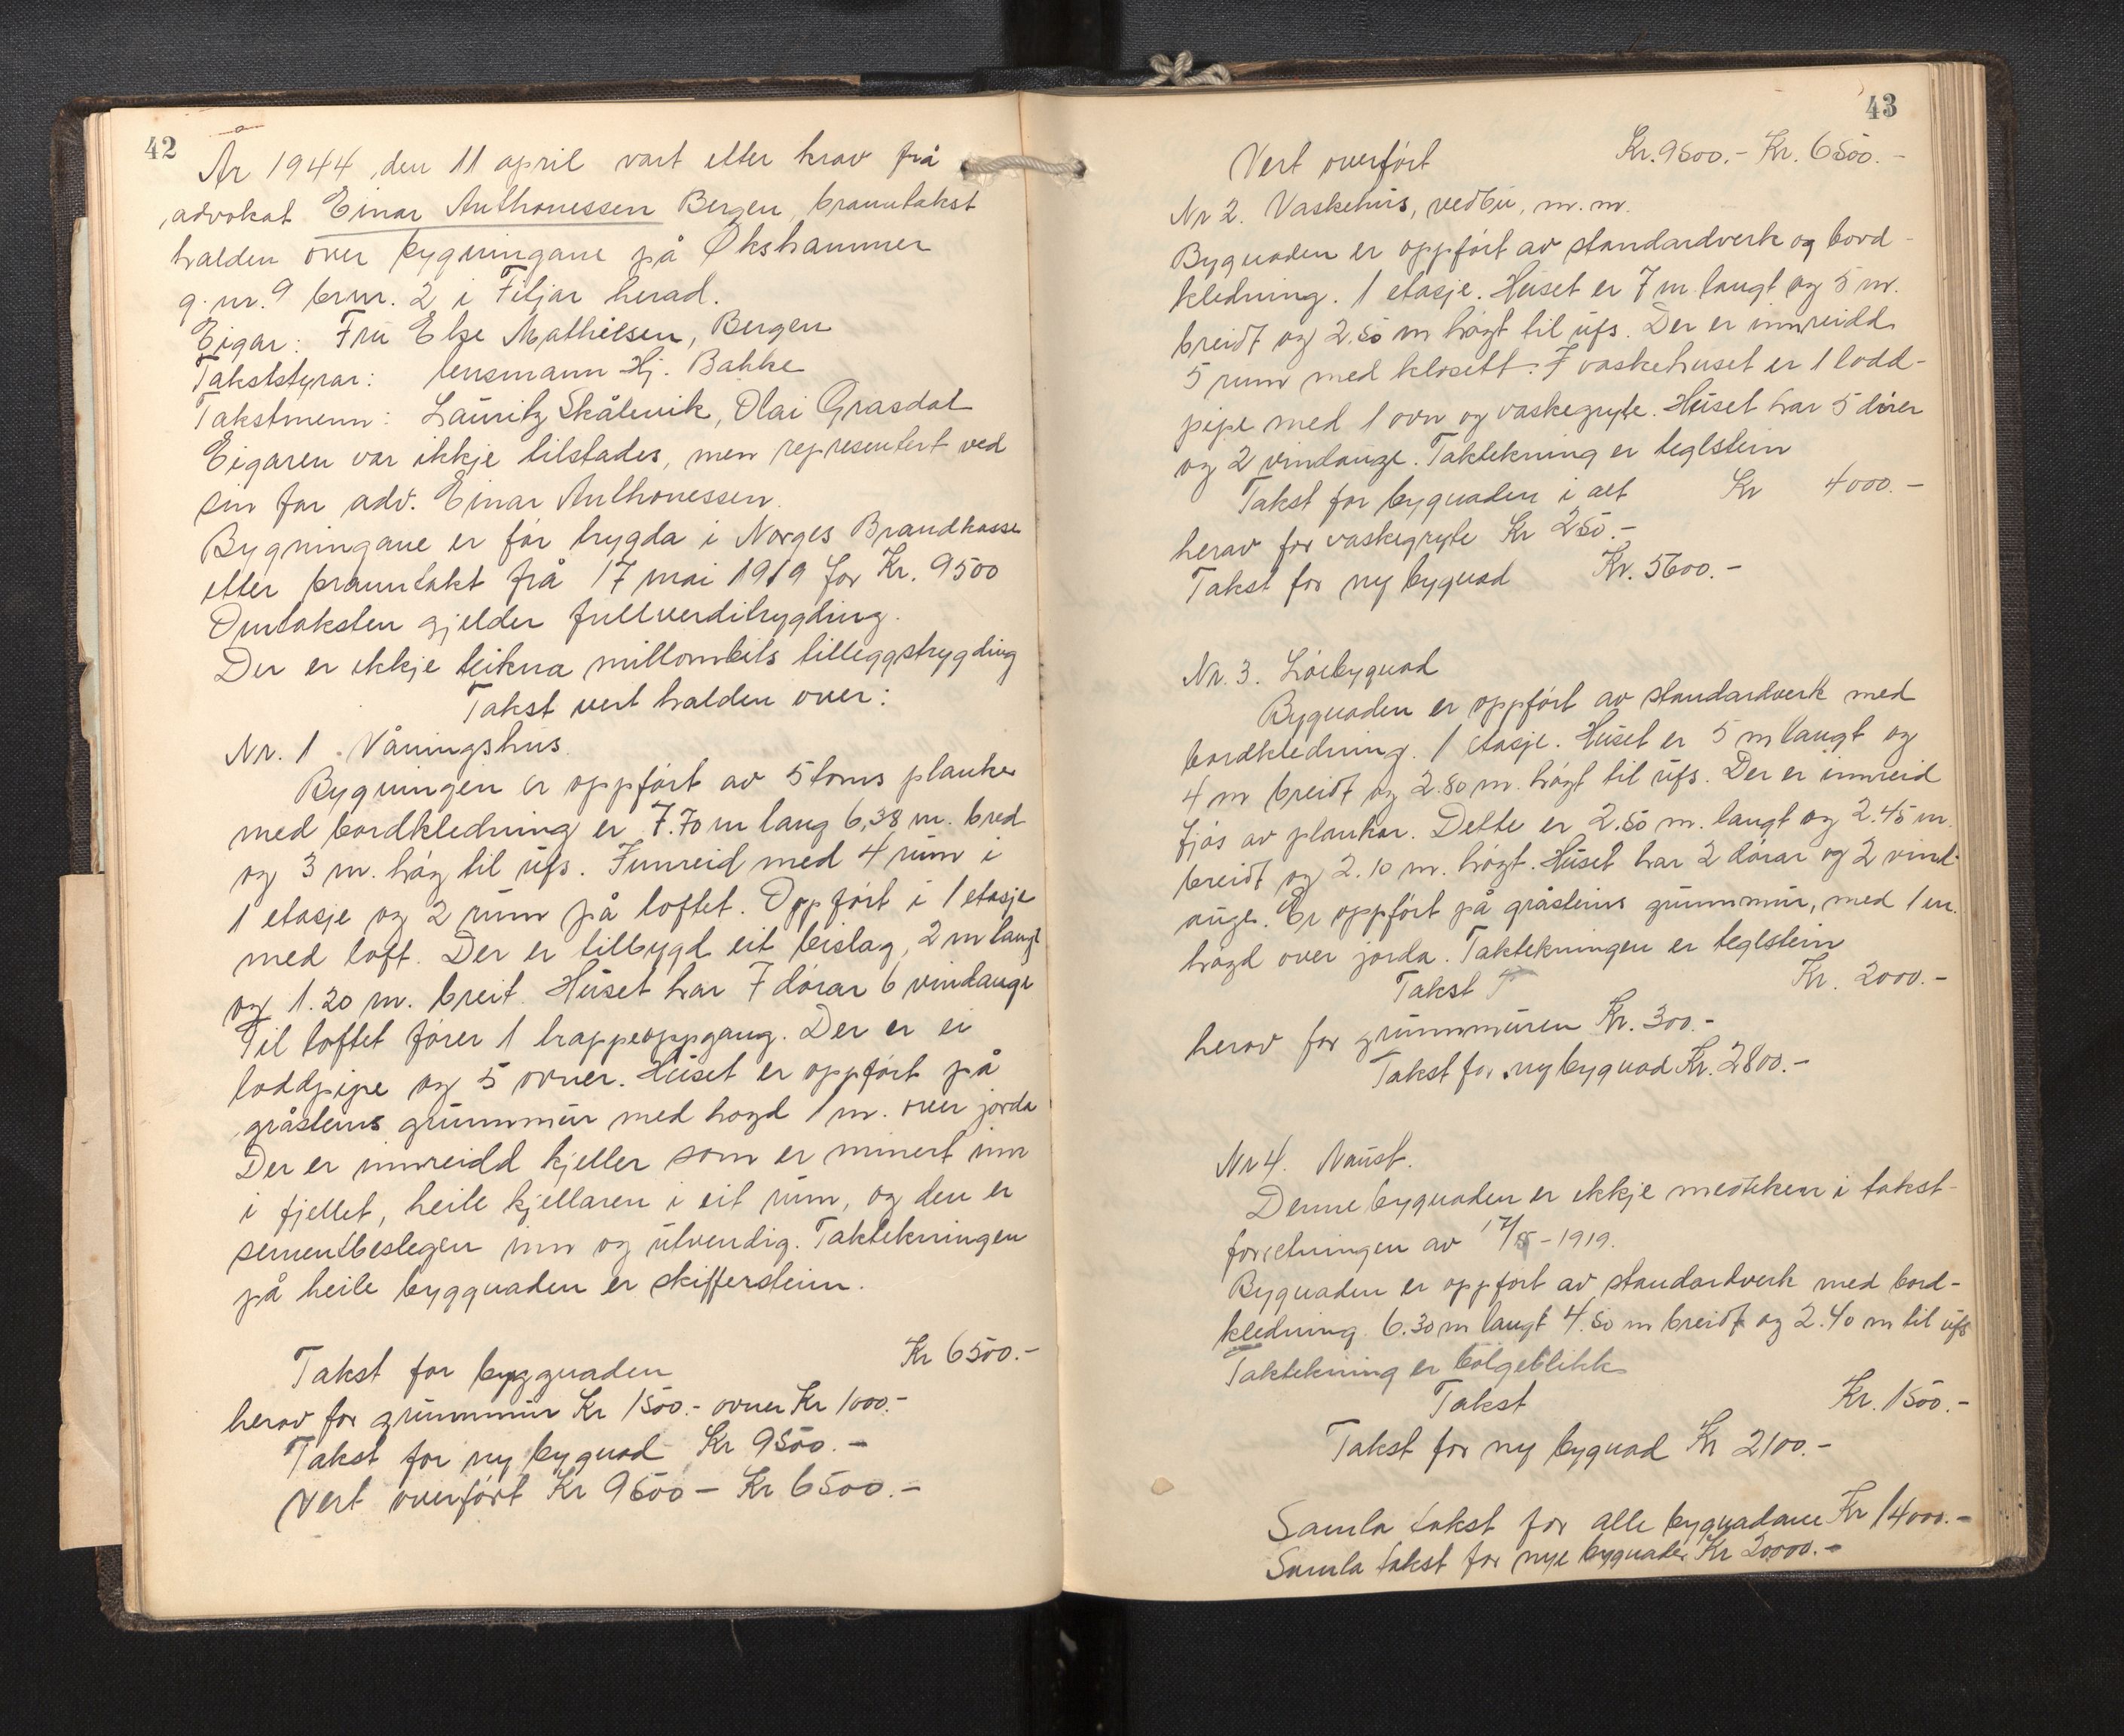 42
År 1944, den 11 april vart etter krav frå
advokat Einar Anthonessen Bergen, branntakst
halden over bygningane på Økshammer
g.nr. 9 br.nr. 2 i Fitjar herad.
Eigar: Fru Else Mathiesen, Bergen
Takststyrar: lensmann Hj. Bakke
Takstmenn: Lauritz Skålevik, Olai Grasdal
Eigaren var ikkje tilstades, men representert ved
sin far adv. Einar Anthonessen.
Bygningane er før trygda i Norges Brandkasse
etter branntakt frå 17 mai 1919 for Kr. 9500
Omtaksten gjelder fullverditrygding.
Der er ikkje teikna millombils tilleggstrygding
Takst vert halden over:
Nr. 1. Våningshus.
Bygningen er oppført av 5 toms planker
med bordkledning er 7.70 m lang 6,38 m. bred
og 3 m. høg til ufs. Innreid med 4 rum i
1 etasje og 2 rum på loftet. Oppført i 1 etasje
med loft. Der er tilbygd eit bislag, 2 m langt
og 1.20 m. breit. Huset har 7 dørar 6 vindauge
Til loftet fører 1 trappeoppgang. Der er ei
loddpipe og 5 ovner. Huset er oppført på
gråsteins grunnmur med høgd 1 m. over jorda
Der er innreidd kjeller som er minert inn
i fjellet, heile kjellaren i eit rum, og den er
sementbeslegen inn og utvendig. Taktekningen
på heile byggnaden er skiffersteinn.
Takst for byggnaden Kr 6500.-
herav for grunnmur Kr 1500.- ovner Kr 1000.-
Takst for ny bygnad Kr 9500.-
Vert overført Kr 9500 - Kr 6500.-
43
Vert overført Kr. 9500.- Kr. 6500.-
Nr 2. Vaskehus, vedbu, m.m.
Bygnaden er oppført av standardverk og bord-
kledning. 1 etasje. Huset er 7 m langt og 5 m.
breidt og 2.50 m høgt til ufs. Der er innreidd
5 rum med klosett. I vaskehuset er 1 lodd-
pipe med 1 ovn og vaskegryte. Huset har 5 dører
og 2 vindauge. Taktekning er teglstein
Takst for bygnaden i alt Kr 4000.-
herav for vaskegryte Kr 250.-
Takst for ny bygnad Kr. 5600.-
Nr. 3. Løebygnad
Bygnaden er oppført av standardverk med
bordkledning. 1 etasje. Huset er 5 m langt og
4 m breidt og 2.80 m. høgt til ufs. Der er innreid
fjøs av plankar. Dette er 2.50 m. langt og 2.45 m.
breidt og 2.10 m. høgt. Huset har 2 dørar og 2 vind-
auge. Er oppført på gråsteins grunnmur, med 1 m.
høgd over jorda. Taktekningen er teglstein
Takst Kr. 2000.-
herav for grunnmuren Kr. 300.-
Takst for ny bygnad Kr. 2800.-
Nr 4. Naust.
Denne bygnaden er ikkje medteken i takst-
forretningen av 17/5-1919.
Bygnaden er oppført av standardverk med bord-
kledning. 6.30 m langt 4.50 m breidt og 2.40 m til ufs
Taktekning er bølgeblikk
Takst Kr. 1500.-
Takst for ny bygnad Kr 2100.-
Samla takst for alle bygnadane Kr 14000.-
Samla takst for nye bygnader Kr 20000.-